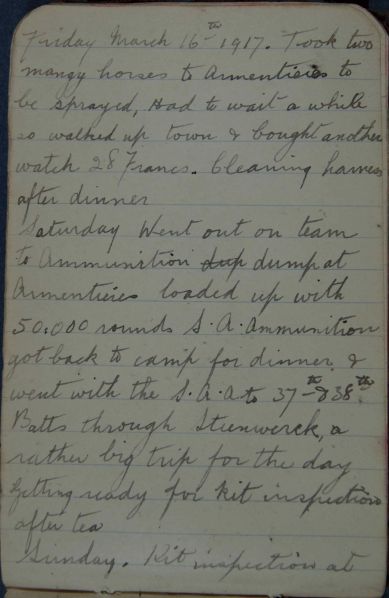 Friday March 16th 1917. Took two
mangy horses to Armentieres to
be sprayed, Had to wait a while
so walked up town & bought another
watch 28 Francs. Cleaning harness
after dinner
Saturday Went out on team
to Ammunition dup dump at
Armentieres loaded up with
50.000 rounds S.A. Ammunition
got back to camp for dinner &
went with the S.A.A to 37th & 38th
Batts through Steenwerck, a
rather big trip for the day
Getting ready for kit inspection
after tea
Sunday. Kit inspection at